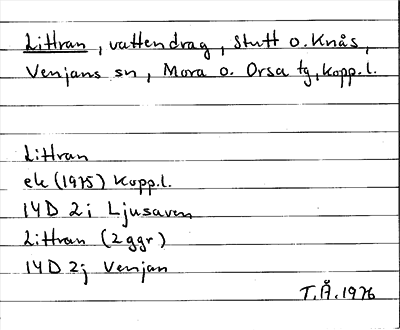 Littran, vattendrag, Stutt o. Knås,
Venjans sn, Mora o. Orsa tg, Kopp.l.
Littran
ek (1975) Kopp.l.
14D 2i Ljusaven
Littran (2 ggr)
14D 2j Venjan
T.Å. 1976